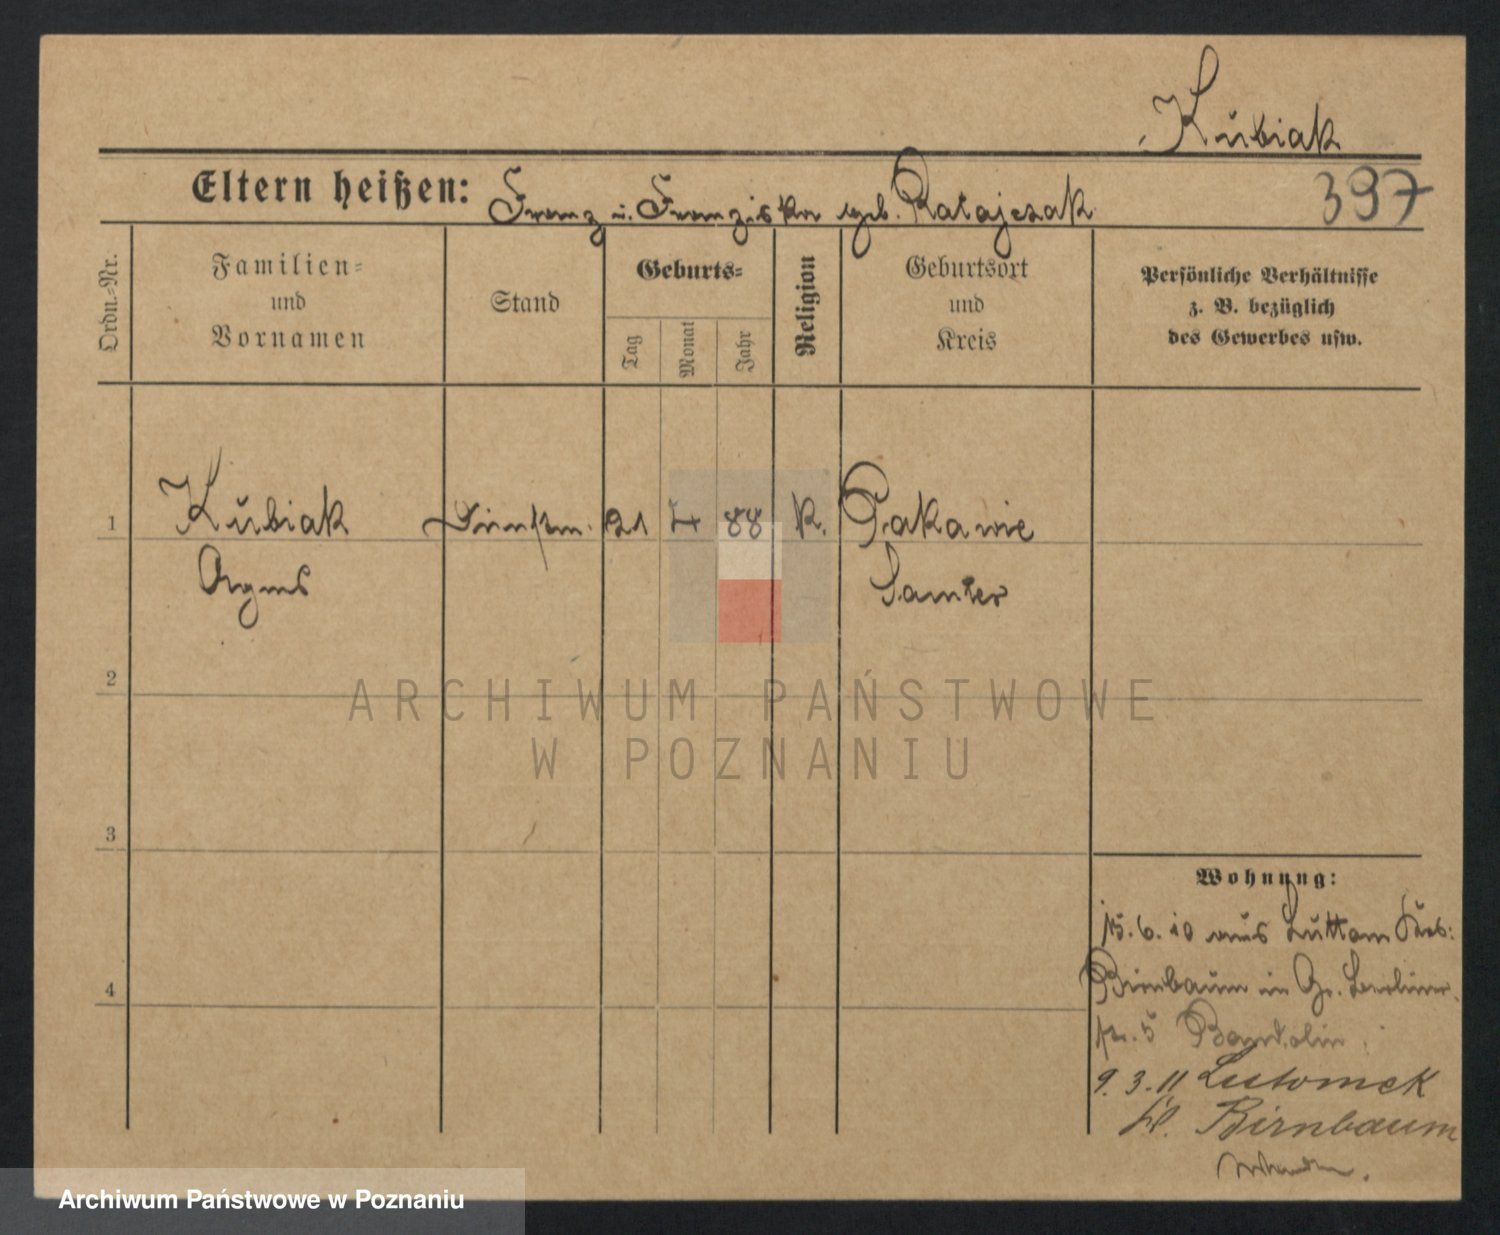 Kubiak
Eltern heißen: Franz u. Franziska geb. Ratajczak 397
Ordn.-Nr.
Familien-
und
Vornamen
Stand
Geburts-
Tag
Monat
Jahr
Religion
Geburtsort
und
Kreis
Persönliche Verhältnisse
z. B. bezüglich
des Gewerbes usw.
1 Kubiak Dienstm. 21 1 88 k. Pakawie
Agnes Samter
2
ARCHIWUM PAŃSTWOWE
W POZNANIU
3
4
Wohnung:
15.6.10 aus Luttom Krs:
Birnbaum in Gr. Berliner
str. 5
9.3.11 Lutomek
Kr. Birnbaum
Archiwum Państwowe w Poznaniu